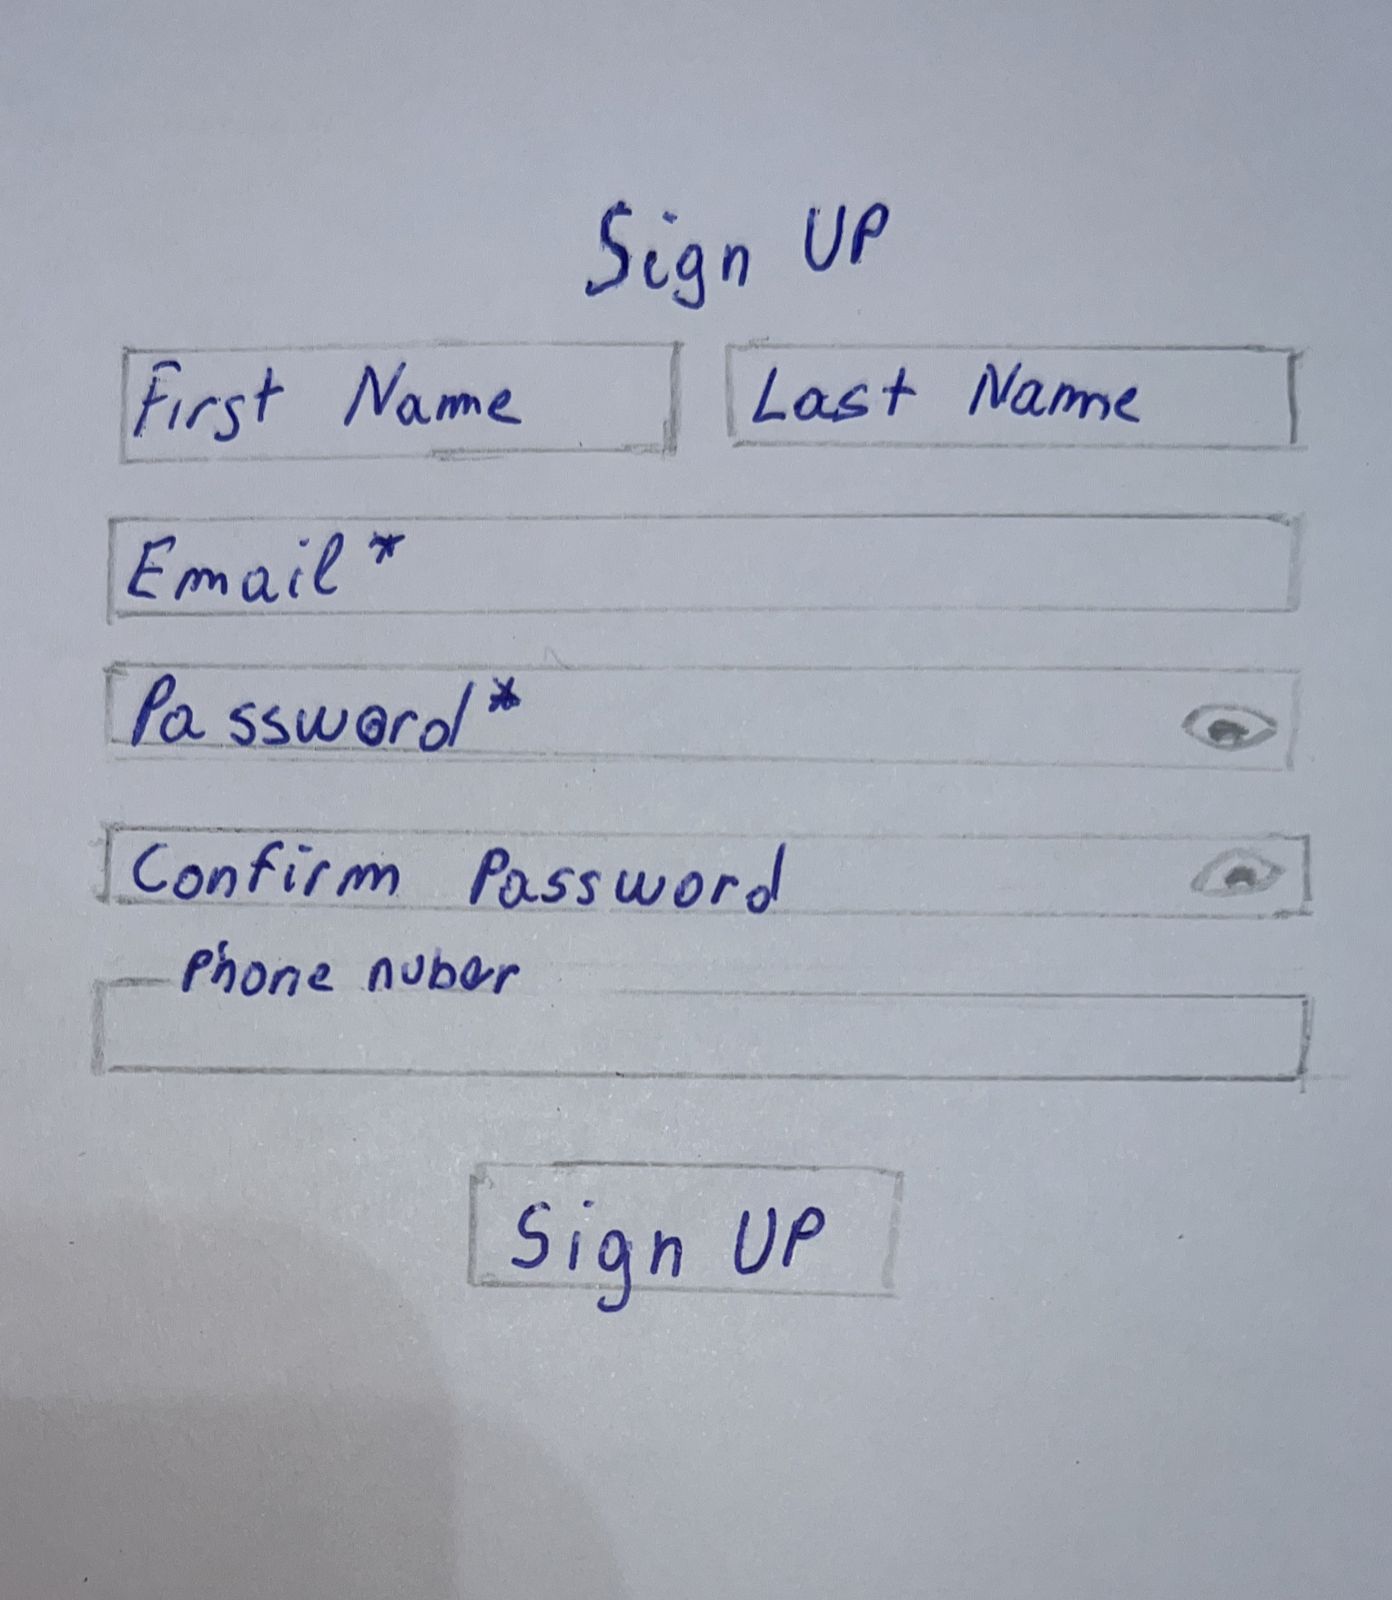 Sign UP
First Name Last Name
Email*
Password*
Confirm Password
Phone nuber
Sign UP